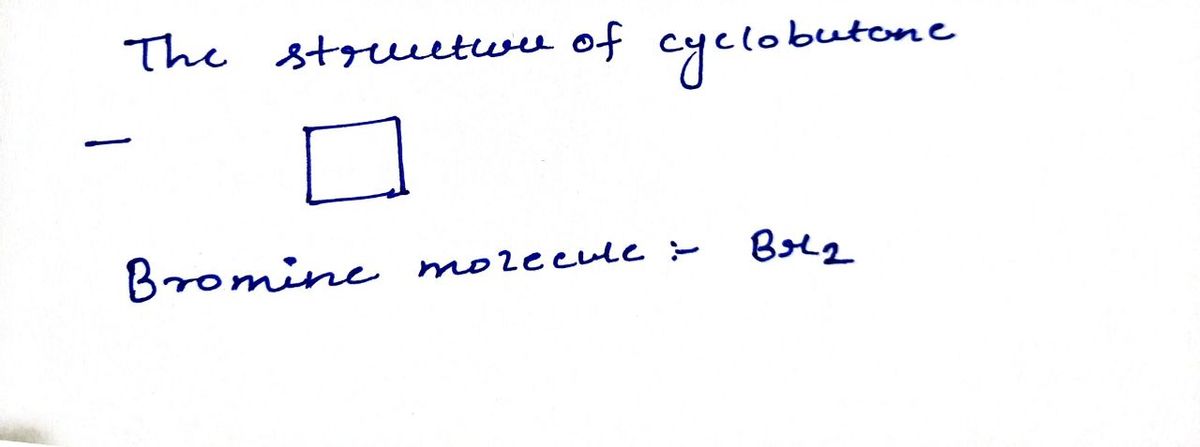 The structure of cyclobutane
Bromine molecule :- Br2